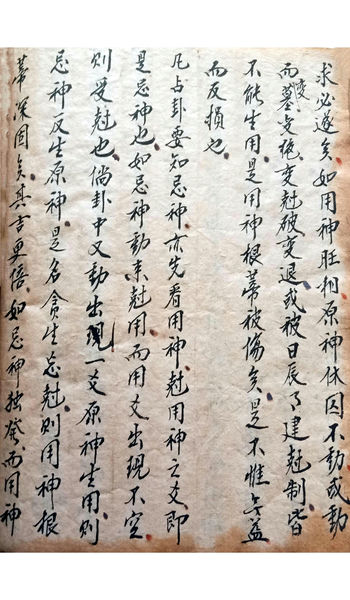 求必遂矣如用神旺相原神休囚不動或動
而變墓變絕變尅破變退或被日辰月建尅制皆
不能生用是用神根蒂被傷矣是不惟無益
而反損也
凡占卦要知忌神亦先看用神尅用神之爻即
是忌神也如忌神動來尅用而用爻出現不空
則受尅也倘卦中又動出現一爻原神生用則
忌神反生原神是名貪生忘尅則用神根
蒂深固矣其吉更倍如忌神独發而用神